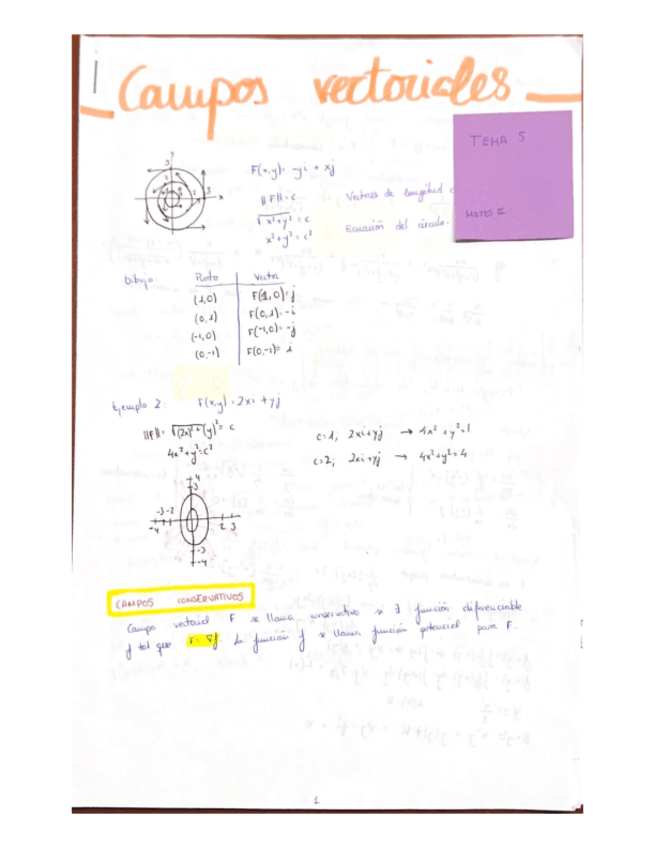 Campos vectoriales
TEMA 5
MATES II
F(x,y)= -yi + xj
||F||= c Vectores de longitud
√x²+y² = c Ecuación del círculo.
x²+y² = c²
Dibujo: Punto Vector
(1,0) F(1,0)=j
(0,1) F(0,1)=-i
(-1,0) F(-1,0)=-j
(0,-1) F(0,-1)= i
Ejemplo 2: F(x,y)=2xi+yj
||F||= √(2x)²+(y)² = c
4x²+y²=c²
c=1; 2xi+yj → 4x²+y²=1
c=2; 2xi+yj → 4x²+y²=4
CAMPOS CONSERVATIVOS
Campo vectorial F se llama conservativo si ∃ función diferenciable
f tal que F=∇f. La función f se llama función potencial para F.
1